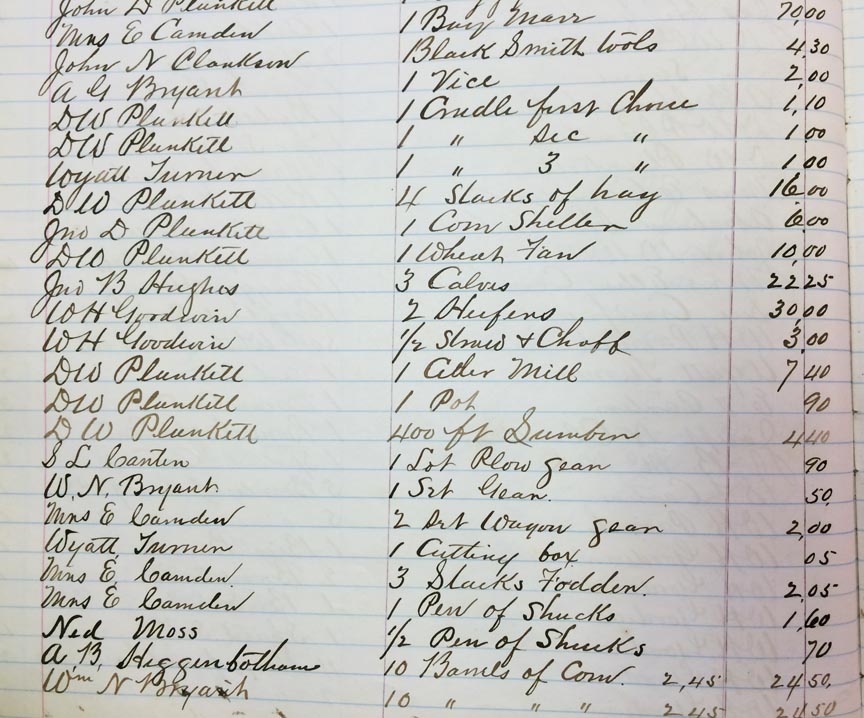 John D Plunkett 1 Bay Marr 70.00
Mrs E Camden Black Smith tools 4.30
John N Clankson 1 Vice 2.00
A G Bryant 1 Cradle first Choice 1.10
DW Plunkett 1 " Sec " 1.00
DW Plunkett 1 " 3 " 1.00
Wyatt Turner 4 Stacks of hay 16.00
DW Plunkett 1 Corn Sheller 6.00
Jno D Plunkett 1 Wheat Fan 10.00
DW Plunkett 3 Calves 22 25
Jno B Hughes 2 Heifers 30.00
WH Goodwin 1/2 Straw & Chaff 3.00
WH Goodwin 1 Cider Mill 7 40
DW Plunkett 1 Pot 90
DW Plunkett 400 ft Lumber 4 40
DW Plunkett 1 Lot Plow gear 90
S L Carter 1 Set Gear. 50
W. N. Bryant 2 Set Wagon gear 2.00
Mrs E Camden 1 Cutting box 05
Wyatt Turner 3 Stacks Fodder. 2.05
Mrs E. Camden 1 Pen of Shucks 1.60
Mrs E. Camden 1/2 Pen of Shucks 70
Ned Moss 10 Barrels of Corn. 2,45 24 50.
A. B. Higgenbotham 10 " " " 2 45 24 50
Wm N Bryant